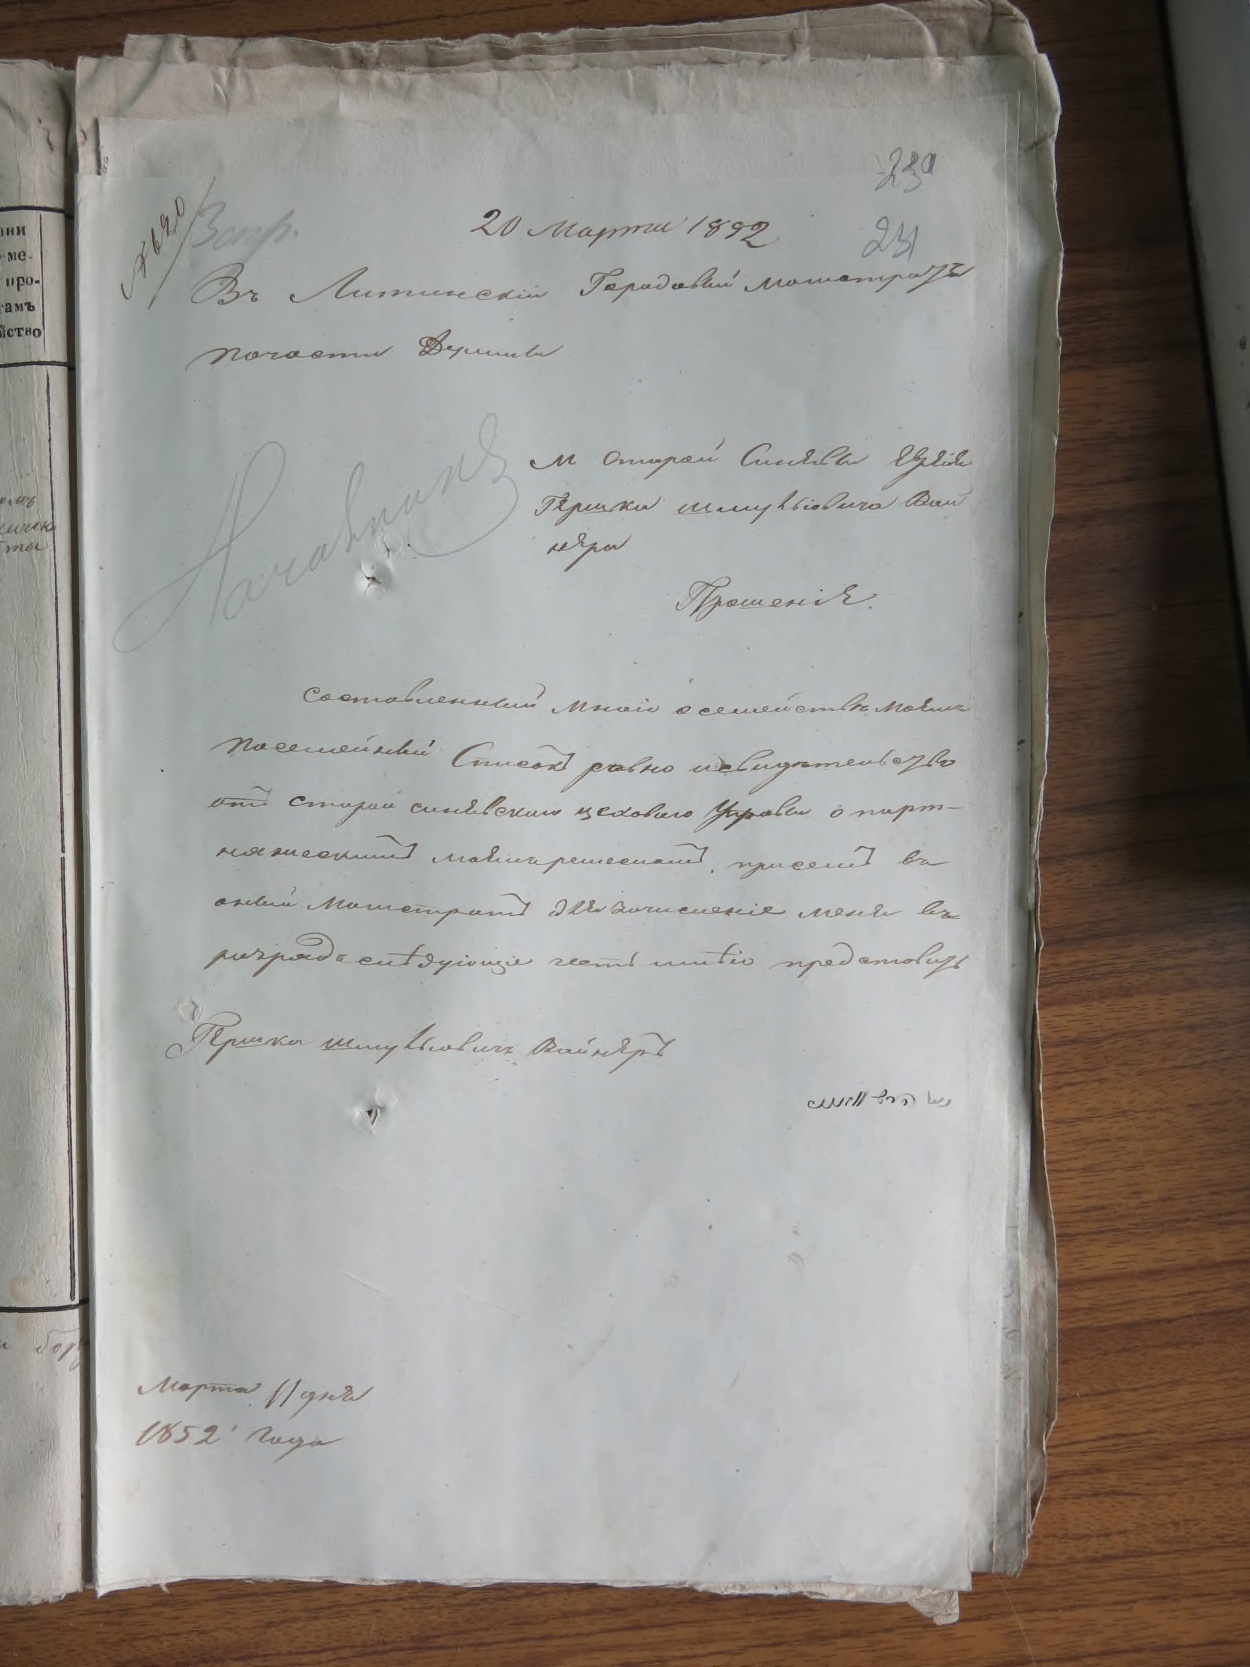 230
231
№ 620
20 Марта 1852
Въ Литинскій Городовый Магистратъ
по части Думы
М Старой Синявы Еврея
Гершка Шмулѣовича Вай
нера
Прошеніе.
Составленный мною о семействѣ моемъ
посемейный Списокъ равно и свидѣтельство
отъ старой синявского цеховаго Управы о порт-
няжескимъ моемъ ремесломъ, при семъ въ
оный Магистратъ для зачисленіе меня въ
разрядъ слѣдующіе честь имѣю представить
Гершко Шмулѣовичъ Вайнеръ
Марта 11 дня
1852 года
ани
ме-
про-
гамъ
йство